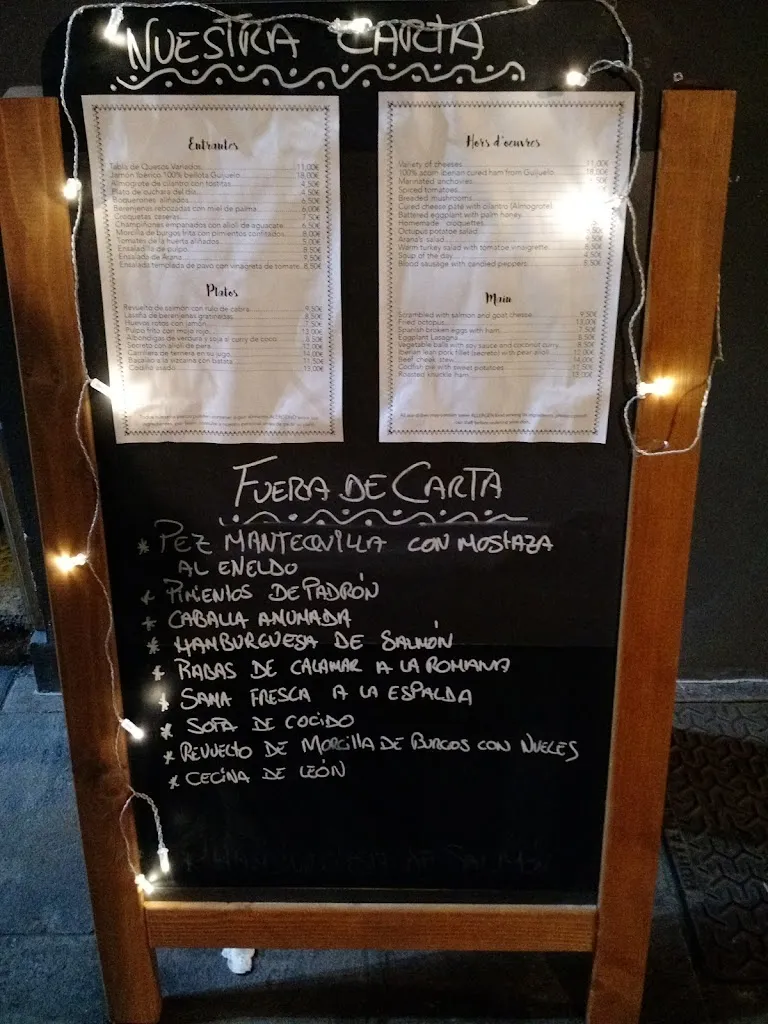 NUESTRA CARTA
Entrantes
Tabla de Quesos Variados 11,00€
Jamón Ibérico 100% bellota Guijuelo 18,00€
Almogrote de cilantro con tostitas 4,50€
Plato de cuchara del día 4,50€
Boquerones aliñados 6,50€
Berenjenas rebozadas con miel de palma 6,00€
Croquetas caseras 7,50€
Champiñones empanados con alioli de aguacate 6,50€
Morcilla de burgos frita con pimientos confitados 8,00€
Tomates de la huerta aliñados 5,00€
Ensaladilla de pulpo 8,50€
Ensalada de Arana 9,50€
Ensalada templada de pavo con vinagreta de tomate 8,50€
Platos
Revuelto de salmón con rulo de cabra 9,50€
Lasaña de berenjenas gratinadas 8,50€
Huevos rotos con jamón 7,50€
Pulpo frito con mojo rojo 13,00€
Albóndigas de verdura y soja al curry de coco 8,50€
Secreto con alioli de pera 12,00€
Carrillera de ternera en su jugo 14,00€
Bacalao a la vizcaina con batata 11,50€
Codillo asado 13,00€
Hors d'oeuvres
Variety of cheeses 11,00€
100% acorn iberian cured ham from Guijuelo 18,00€
Marinated anchovies
Spiced tomatoes
Breaded mushrooms
Cured cheese paté with cilantro (Almogrote)
Battered eggplant with palm honey
Homemade croquettes
Octupus potatoe salad
Arana's salad
Warm turkey salad with tomatoe vinaigrette 8,50€
Soup of the day 4,50€
Blood sausage with candied peppers 8,50€
Main
Scrambled with salmon and goat cheese 9,50€
Fried octopus 13,00€
Spanish broken eggs with ham 7,50€
Eggplant Lasagna 8,50€
Vegetable balls with soy sauce and coconut curry 8,50€
Iberian lean pork fillet (secreto) with pear alioli 12,00€
Beef cheek stew 14,00€
Codfish pie with sweet potatoes 11,50€
Roasted knuckle ham 13,00€
FUERA DE CARTA
* PEZ MANTEQUILLA CON MOSTAZA
AL ENELDO
* PIMIENTOS DE PADRÓN
* CABALLA AHUMADA
* HAMBURGUESA DE SALMÓN
* RABAS DE CALAMAR A LA ROMANA
* SAMA FRESCA A LA ESPALDA
* SOPA DE COCIDO
* REVUELTO DE MORCILLA DE BURGOS CON NUECES
* CECINA DE LEÓN